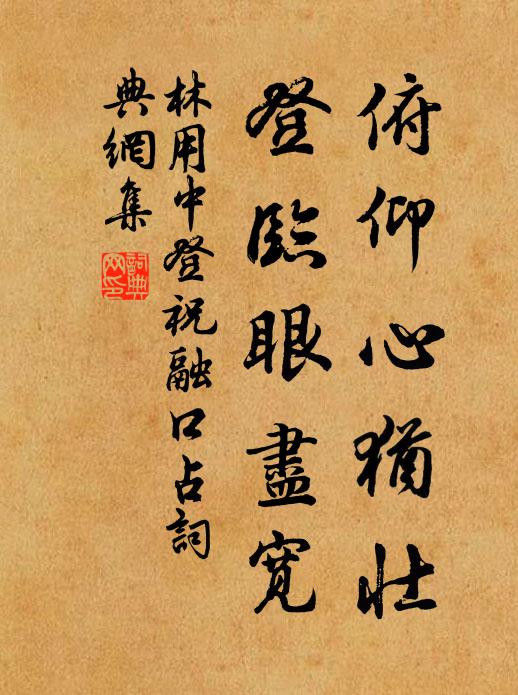 俯仰心猶壯
登臨眼盡寬
林用中登祝融口占詞
典網集
詞典
网印